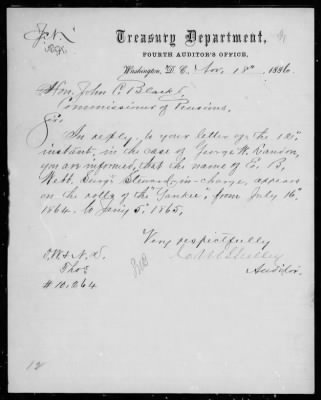 Treasury Department,
FOURTH AUDITOR'S OFFICE,
Washington, D. C. Nov. 18" 1886.
Hon. John C. Black,
Commissioner of Pensions,
Sir:
In reply to your letter of the 12"
instant, in the case of George W.
you are informed, that the name of E. B.
Webb, Surg's Steward in-charge, appears
on the rolls of the "Yankee", from July 16"
1864, to 5" 1865.
Very respectfully
Auditor.
No. 10,264
12